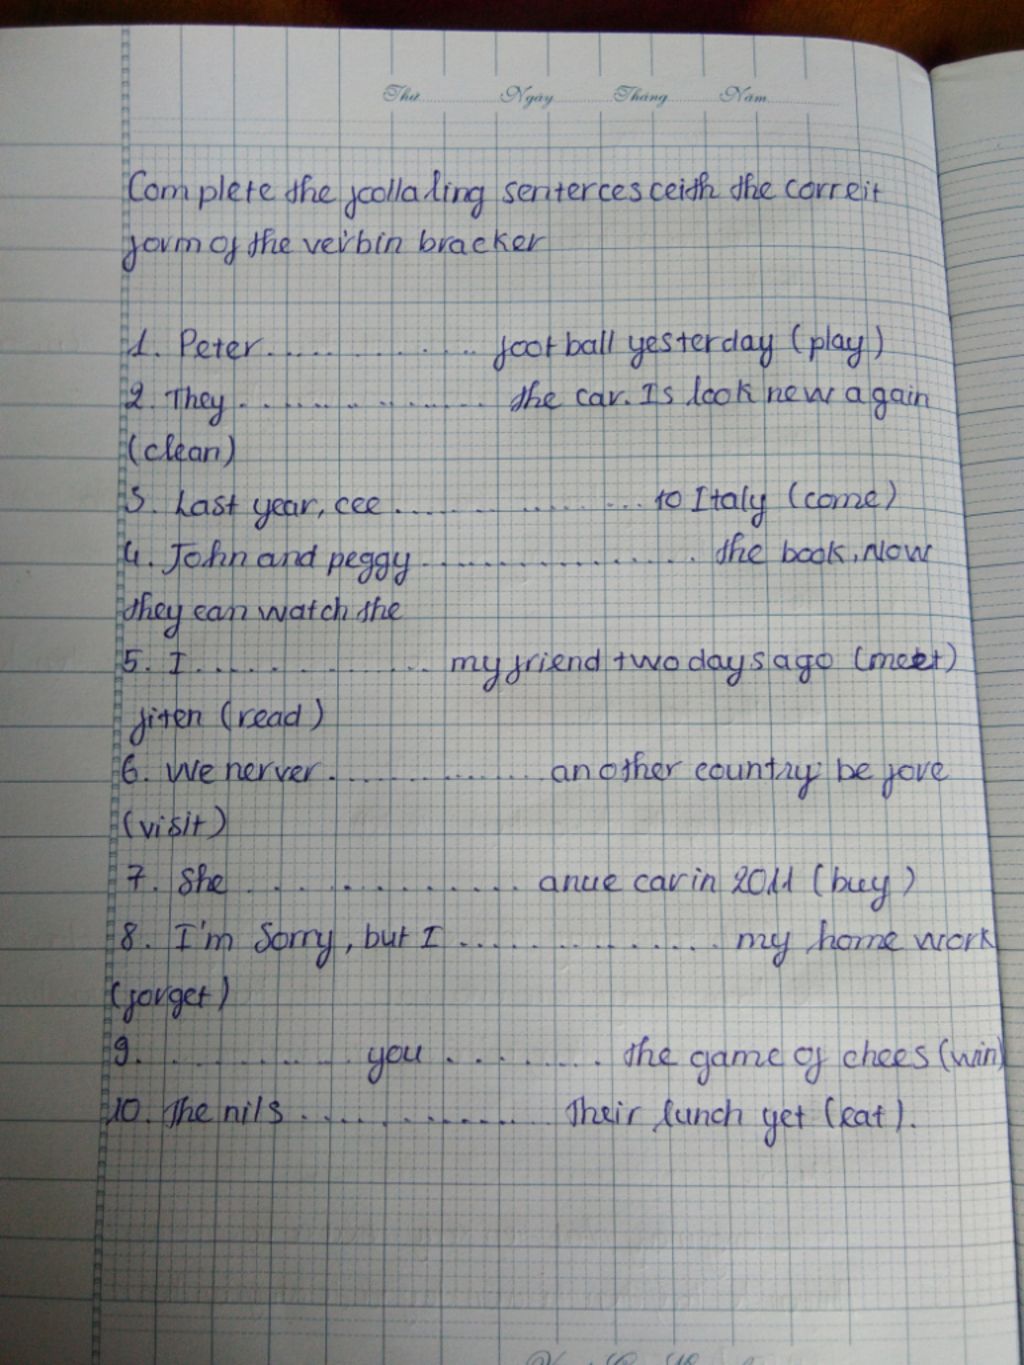 Thứ Ngày Tháng Năm
Complete the follaling senterces ceith the correit
form of the verbin bracker
1. Peter................ foot ball yesterday (play)
2. They................... the car. Is look new again
(clean)
3. Last year, cee................... to Italy (come)
4. John and peggy................... the book. Now
they can watch the
5. I................ my friend two days ago (meet)
fiten (read)
6. We nerver............... another country be fore
(visit)
7. She................... anue car in 2011 (buy)
8. I'm Sorry, but I................... my home work
(forget)
9. ............. you .......... the game of chees (win)
10. The nils................ Their lunch yet (eat).